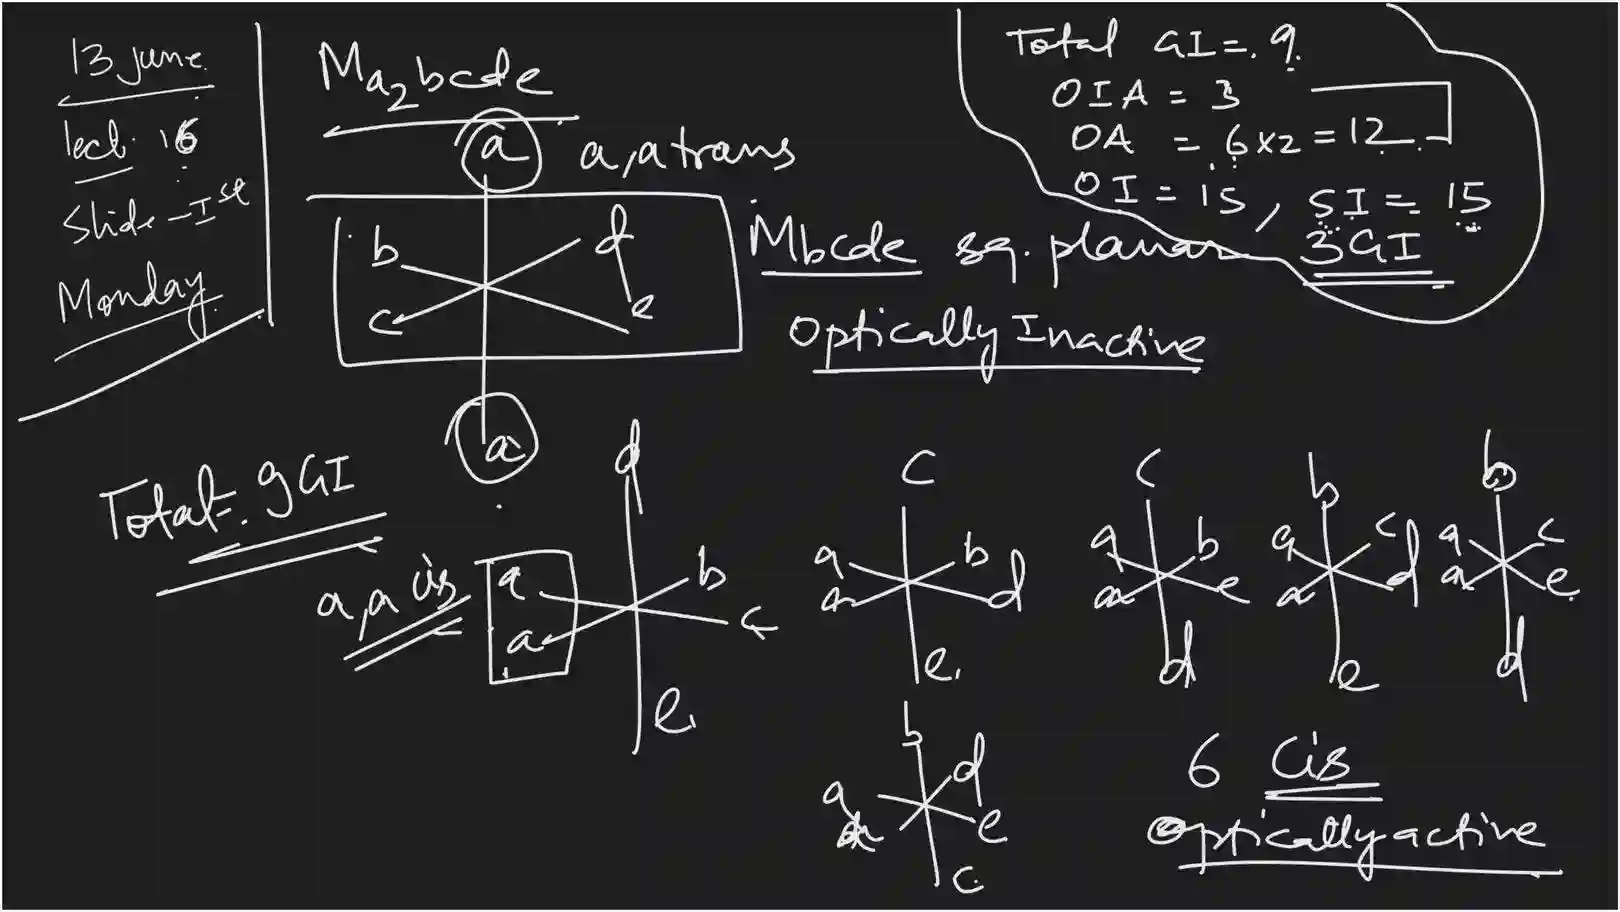 13 june.
lect. 16
Slide - Ist
Monday
Ma2bcde
a a, a trans
b d
c e
a
Mbcde sq. planar
Optically Inactive
Total GI = 9
OIA = 3
OA = 6x2 = 12
OI = 15, SI = 15
3GI
Total = 9GI
a, a cis
d
a b
a c
e
c
a b
a d
e
c
a b
a e
d
b
a c
a d
e
b
a c
a e
d
b
a d
a e
c
6 Cis
Optically active